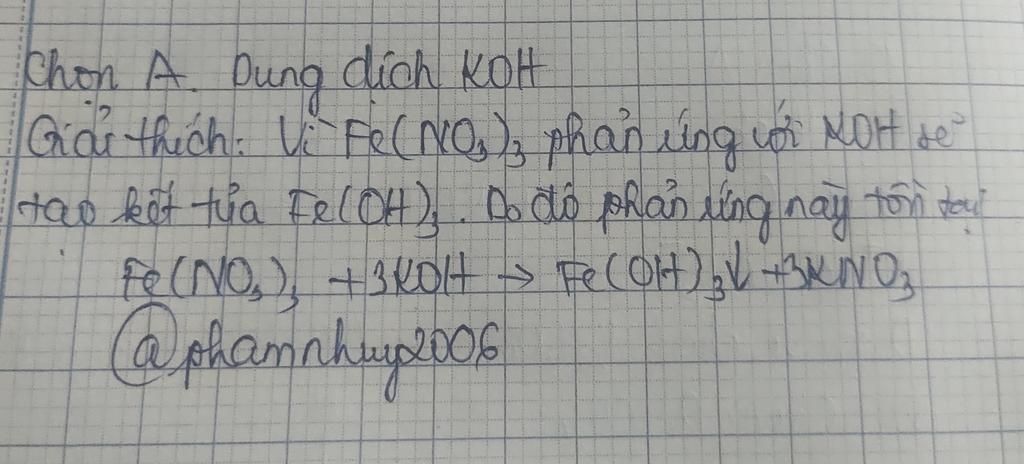 Chọn A. Dung dịch KOH
Giải thích: Vì Fe(NO₃)₃ phản ứng với KOH sẽ
tạo kết tủa Fe(OH)₃. Do đó phản ứng này tồn tại
Fe(NO₃)₃ + 3KOH → Fe(OH)₃↓ + 3KNO₃
@phamnhuy2006